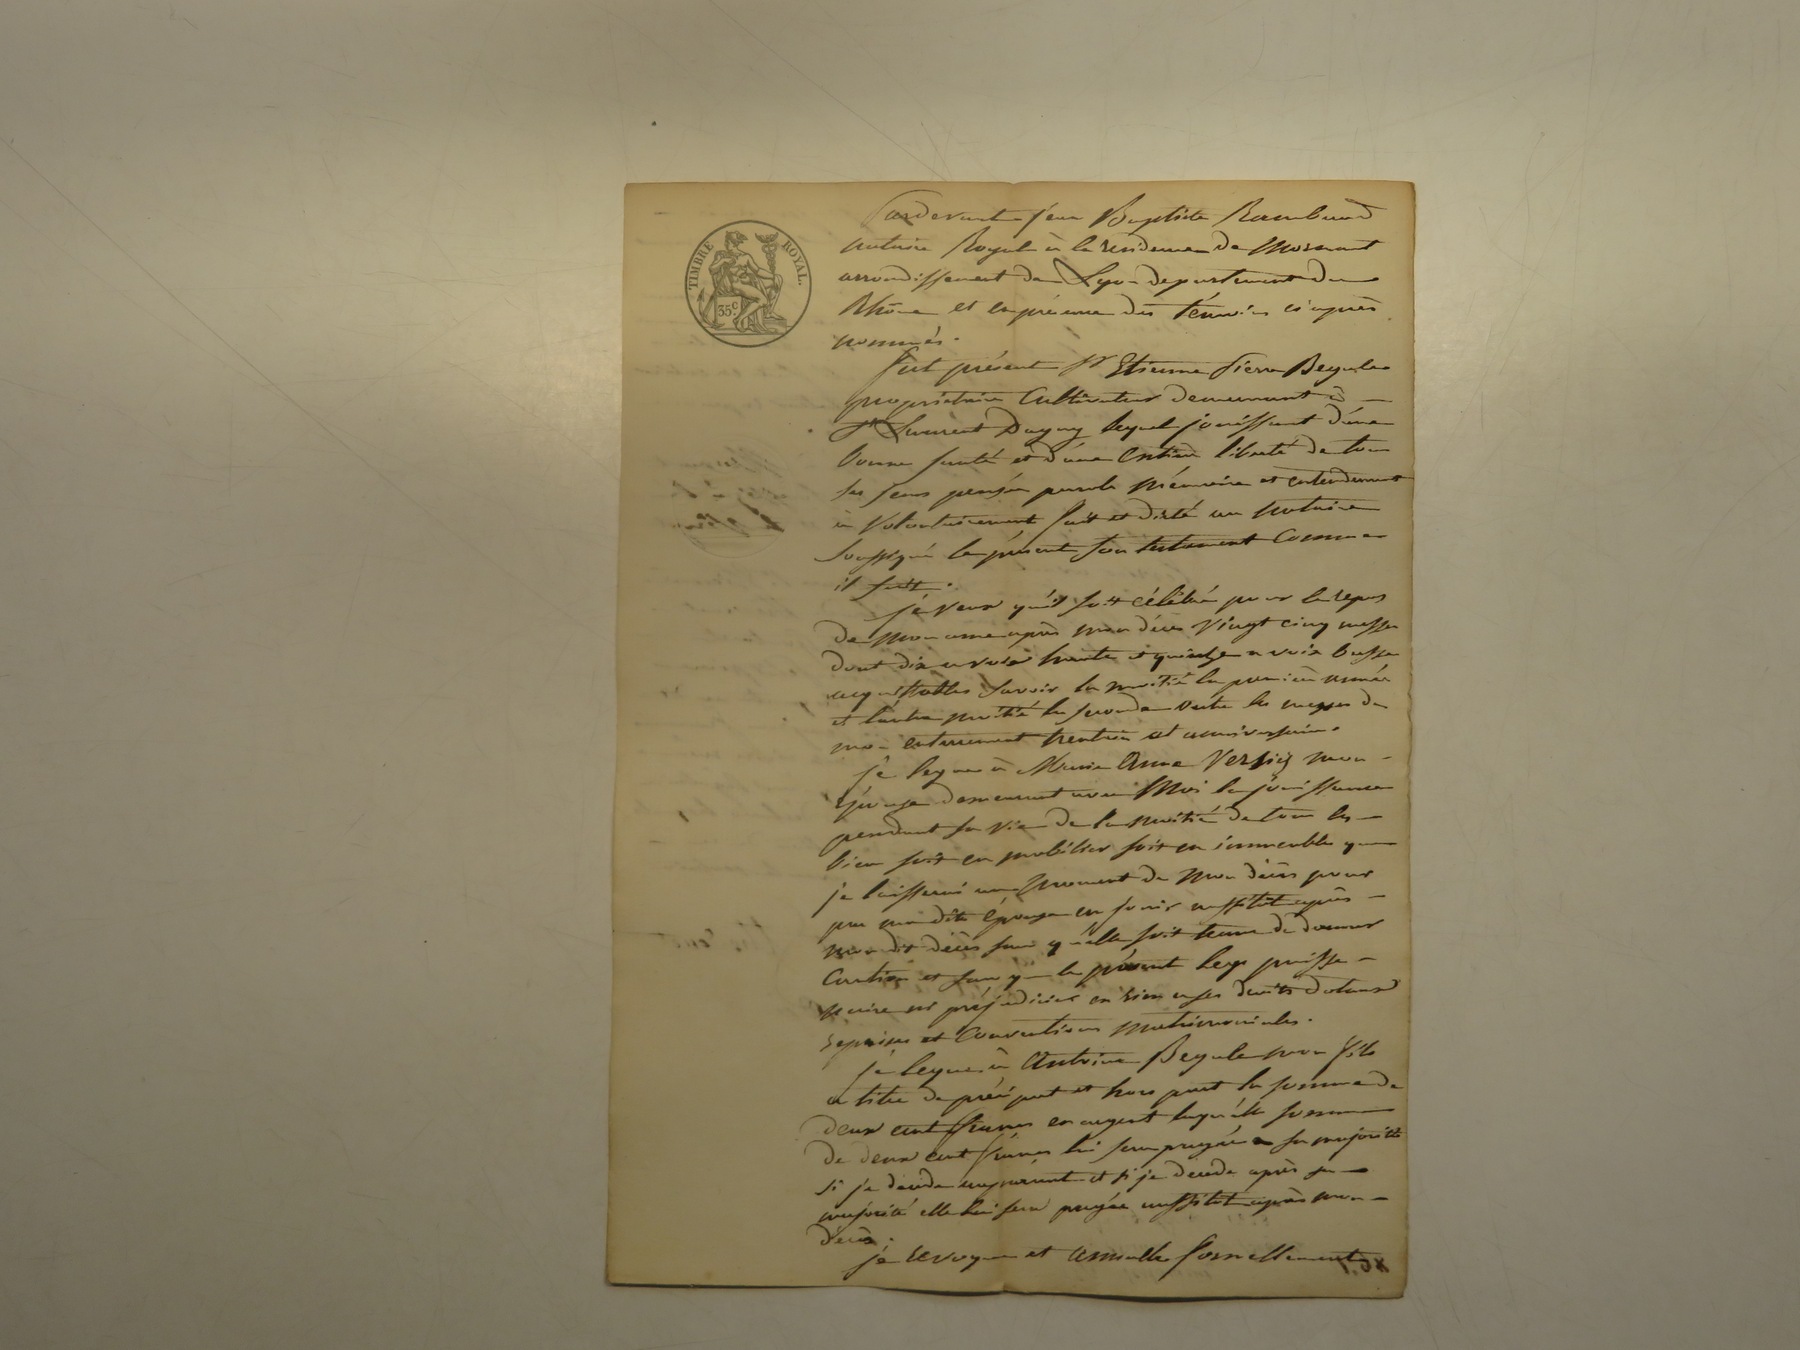 TIMBRE ROYAL.
35c
Pardevant Jean Baptiste Rambaud
notaire Royal à la residence de Mornant
arrondissement de Lyon departement du
Rhône et en présence des témoins ci après
nommés.
fut présent Sr Etienne Pierre Beyule
propriétaire Cultivateur demeurant à
St Laurent Dagny lequel jouissant d'une
bonne santé et d'une entière liberté de tous
ses sens pensée parole mémoire et entendement
à volontairement fait et dicté au notaire
soussigné le présent son testament Comme
il suit.
je veux qu'il soit célébré pour le repos
de mon ame après mon décès vingt cinq messes
dont dix a voix haute et quinze a voix basse
acquittables savoir la moitié la première année
et l'autre moitié la seconde outre les messes de
mon enterrement trentin et anniversaire.
je legue à Marie Anne Verzieg mon
épouse demeurant avec Moi la jouissance
pendant sa vie de la moitié de tous les
bien soit en mobilier soit en immeubles que
je laisserai au moment de mon décès pour
par ma dite épouse en jouir aussitot après
mon dit décès sans qu'elle soit tenue de donner
Caution et sans que le présent legs puisse
nuire ni préjudicier en rien a ses droits dotaux
reprises et Conventions matrimoniales.
je legue à Antoine Beyule mon fils
a titre de préciput et hors part la somme de
deux cent francs en argent laquelle somme
de deux cent francs lui sera payée a sa majorité
si je decede auparavant et si je decede après sa
majorité elle lui sera payée aussitot après mon
décès.
je revoque et annulle formellement